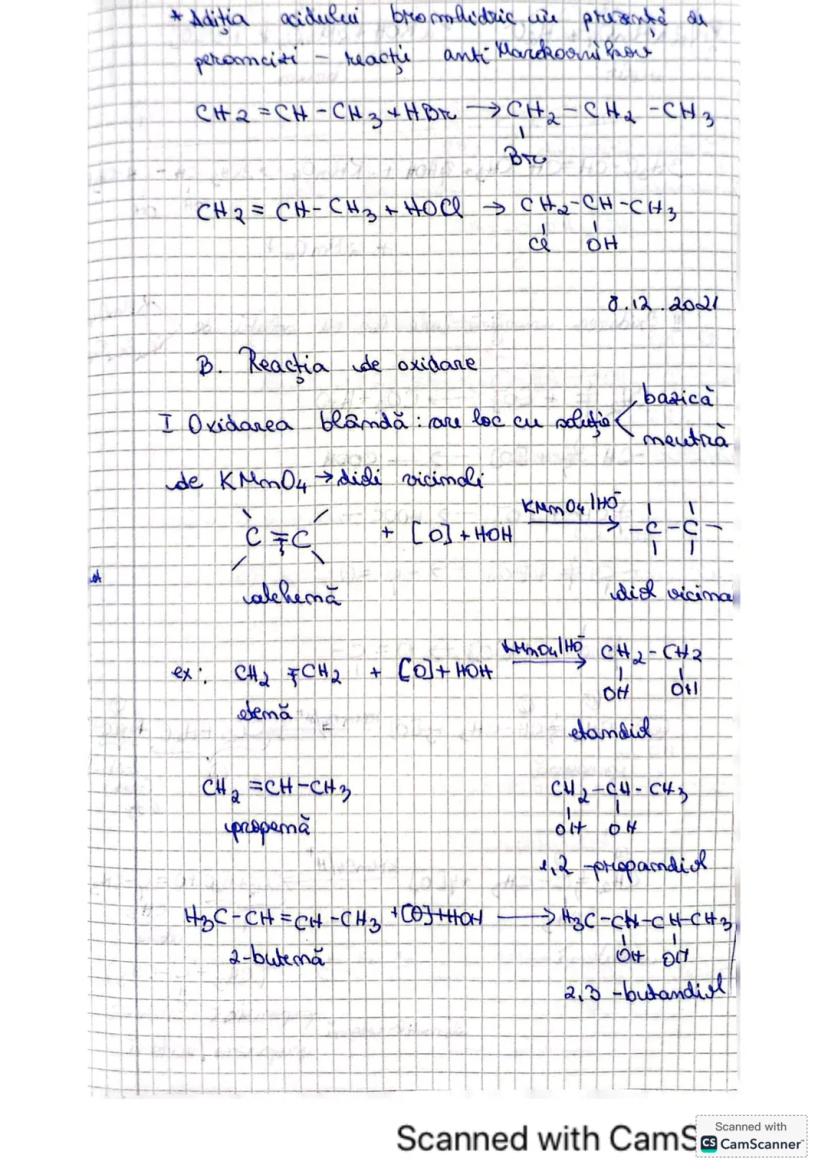 * Adiția acidului bromhidric în prezență de
peroxizi - reacții anti Markovnikov
CH2 = CH - CH3 + HBr → CH2 - CH2 - CH3
Br
CH2 = CH - CH3 + HOCl → CH2 - CH - CH3
Cl OH
8.12.2021
B. Reacția de oxidare
I Oxidarea blândă: are loc cu soluție < bazică
neutră
de KMnO4 → dioli vicinali
C = C + [O] + HOH KMnO4/HO⁻ → - C - C -
alchenă diol vicina
ex: CH2 = CH2 + [O] + HOH KMnO4/HO⁻ → CH2 - CH2
OH OH
etenă
etandiol
CH2 = CH - CH3 CH2 - CH - CH3
propenă OH OH
1,2 - propandiol
H3C - CH = CH - CH3 + [O] + HOH → H3C - CH - CH - CH3
2-butenă OH OH
2,3 - butandiol
Scanned with CamS
Scanned with
CS CamScanner